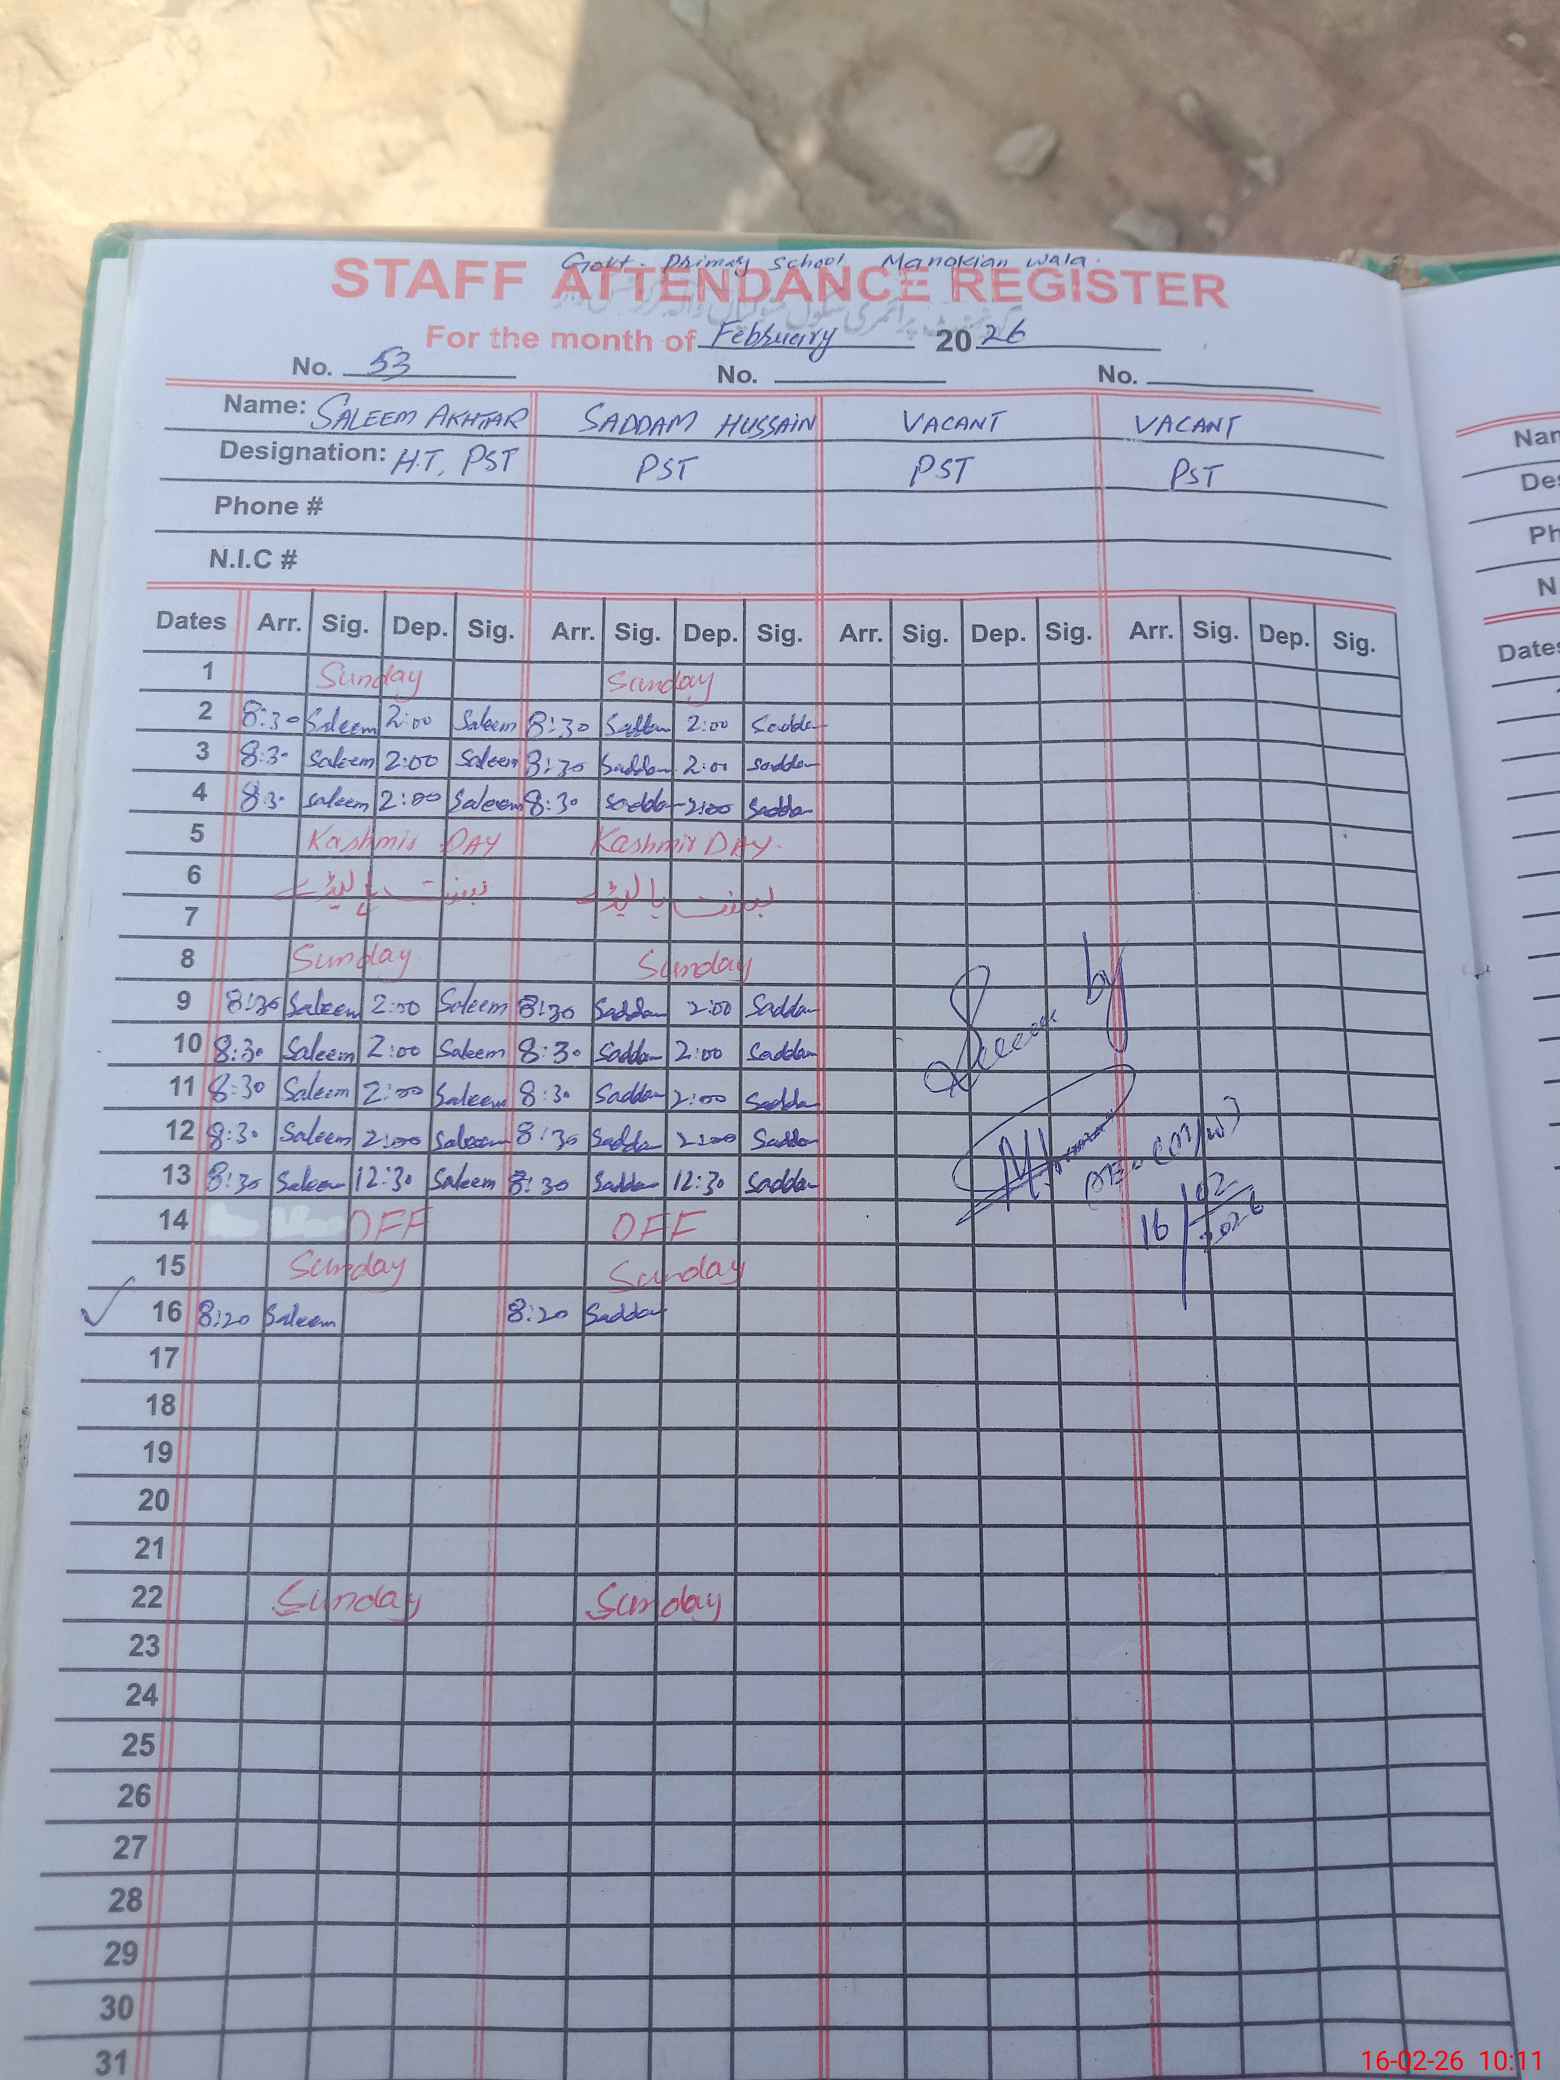 Govt. Primary School Manokian Wala.
STAFF ATTENDANCE REGISTER
For the month of February 2026
No. 53 No. No.
Name: SALEEM AKHTAR SADDAM HUSSAIN VACANT VACANT
Designation: H.T, PST PST PST PST
Phone #
N.I.C #
Dates Arr. Sig. Dep. Sig. Arr. Sig. Dep. Sig. Arr. Sig. Dep. Sig. Arr. Sig. Dep. Sig.
1 Sunday Sunday
2 8:30 Saleem 2:00 Saleem 8:30 Saddam 2:00 Saddam
3 8:30 Saleem 2:00 Saleem 8:30 Saddam 2:00 Saddam
4 8:30 Saleem 2:00 Saleem 8:30 Saddam 2:00 Saddam
5 Kashmir DAY Kashmir DAY.
6
7
8 Sunday Sunday
9 8:30 Saleem 2:00 Saleem 8:30 Saddam 2:00 Saddam
10 8:30 Saleem 2:00 Saleem 8:30 Saddam 2:00 Saddam
11 8:30 Saleem 2:00 Saleem 8:30 Saddam 2:00 Saddam
12 8:30 Saleem 2:00 Saleem 8:30 Saddam 2:00 Saddam
13 8:30 Saleem 12:30 Saleem 8:30 Saddam 12:30 Saddam
14 OFF OFF
15 Sunday Sunday
16 8:20 Saleem 8:20 Saddam
by
16/02/2026
17
18
19
20
21
22 Sunday Sunday
23
24
25
26
27
28
29
30
31
Dates
16-02-26 10:11